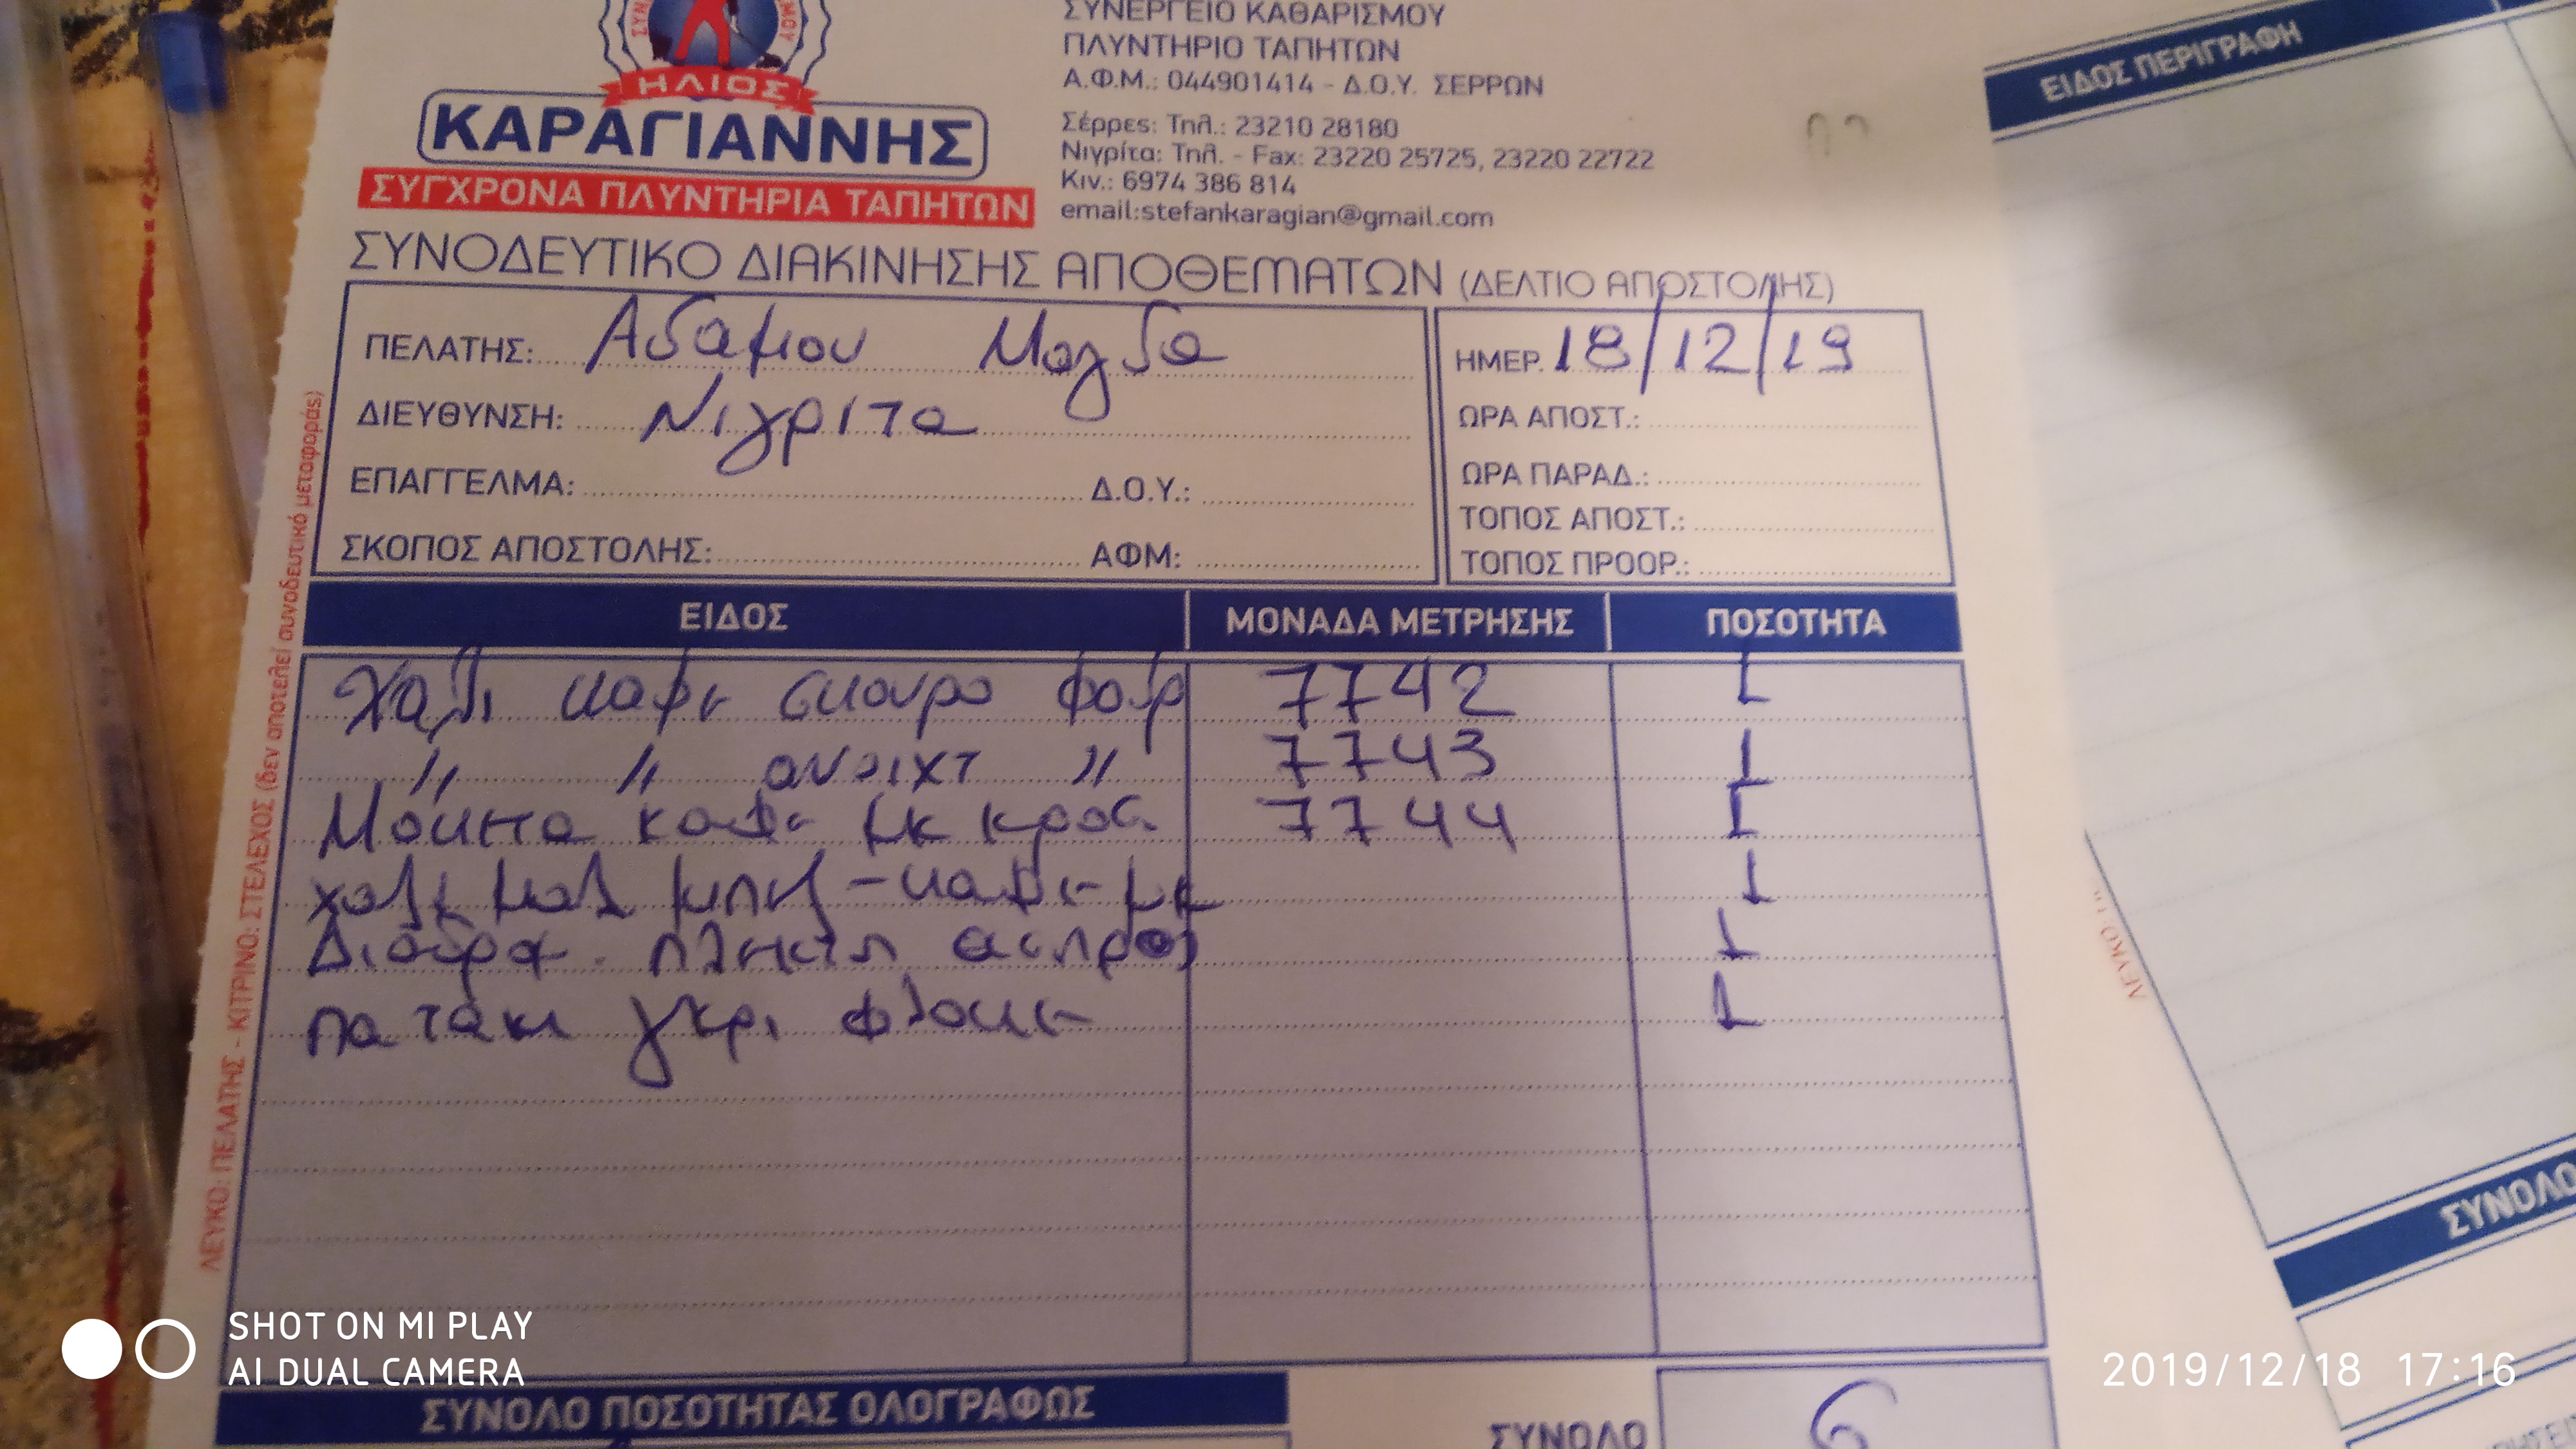 ΗΛΙΟΣ
ΚΑΡΑΓΙΑΝΝΗΣ
ΣΥΓΧΡΟΝΑ ΠΛΥΝΤΗΡΙΑ ΤΑΠΗΤΩΝ
ΣΥΝΕΡΓΕΙΟ ΚΑΘΑΡΙΣΜΟΥ
ΠΛΥΝΤΗΡΙΟ ΤΑΠΗΤΩΝ
Α.Φ.Μ.: 044901414 - Δ.Ο.Υ. ΣΕΡΡΩΝ
Σέρρες: Τηλ.: 23210 28180
Νιγρίτα: Τηλ. - Fax: 23220 25725, 23220 22722
Κιν.: 6974 386 814
email:stefankaragian@gmail.com
ΣΥΝΟΔΕΥΤΙΚΟ ΔΙΑΚΙΝΗΣΗΣ ΑΠΟΘΕΜΑΤΩΝ (ΔΕΛΤΙΟ ΑΠΟΣΤΟΛΗΣ)
ΠΕΛΑΤΗΣ: Αδαμου Μαγδα
ΔΙΕΥΘΥΝΣΗ: Νιγριτα
ΕΠΑΓΓΕΛΜΑ: Δ.Ο.Υ.:
ΣΚΟΠΟΣ ΑΠΟΣΤΟΛΗΣ: ΑΦΜ:
ΗΜΕΡ. 18/12/19
ΩΡΑ ΑΠΟΣΤ.:
ΩΡΑ ΠΑΡΑΔ.:
ΤΟΠΟΣ ΑΠΟΣΤ.:
ΤΟΠΟΣ ΠΡΟΟΡ.:
ΕΙΔΟΣ ΜΟΝΑΔΑ ΜΕΤΡΗΣΗΣ ΠΟΣΟΤΗΤΑ
Χαλι καφε σκουρο 7742 1
〃 〃 ανοιχτ 〃 7743 1
Μοκετα καφε με κροσ. 7744 1
χαλι μπεζ - καφε - με 1
Διαδρ. 1
πατακι γκρι φλοκε 1
ΣΥΝΟΛΟ ΠΟΣΟΤΗΤΑΣ ΟΛΟΓΡΑΦΩΣ
ΣΥΝΟΛΟ 6
ΛΕΥΚΟ: ΠΕΛΑΤΗΣ - ΚΙΤΡΙΝΟ: ΣΤΕΛΕΧΟΣ (δεν αποτελεί συνοδευτικό μεταφοράς)
ΕΙΔΟΣ ΠΕΡΙΓΡΑΦΗ
ΣΥΝΟΛΟ
SHOT ON MI PLAY
AI DUAL CAMERA
2019/12/18 17:16